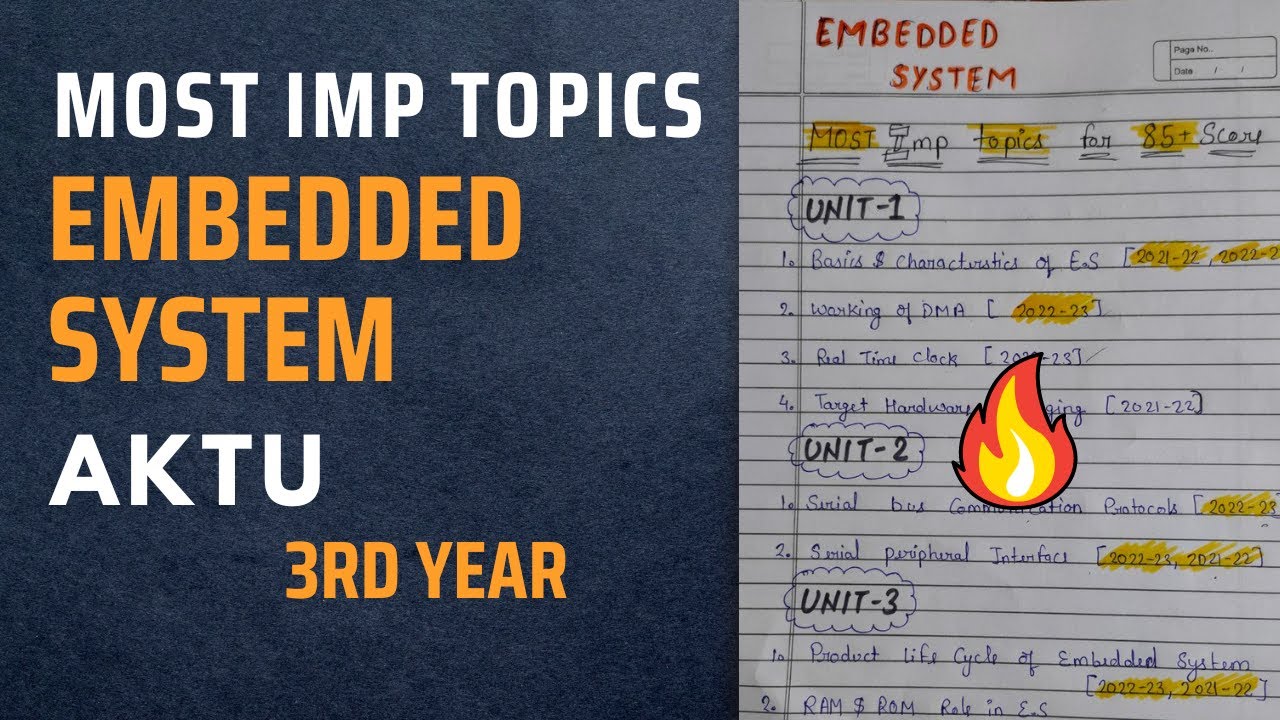 MOST IMP TOPICS
EMBEDDED
SYSTEM
AKTU
3RD YEAR
EMBEDDED
SYSTEM
Page No..
Date / /
MOST Imp topics for 85+ Score
UNIT-1
1. Basics & Characterstics of E.S [2021-22, 2022-2
2. Working of DMA [2022-23]
3. Real Time Clock [20 -23]
4. Target Hardware ging [2021-22]
UNIT-2
1. Serial bus Communication Protocols [2022-23
2. Serial Peripheral Interface [2022-23, 2021-22]
UNIT-3
1. Product life Cycle of Embedded System
[2022-23, 2021-22]
2. RAM & ROM Role in E.S